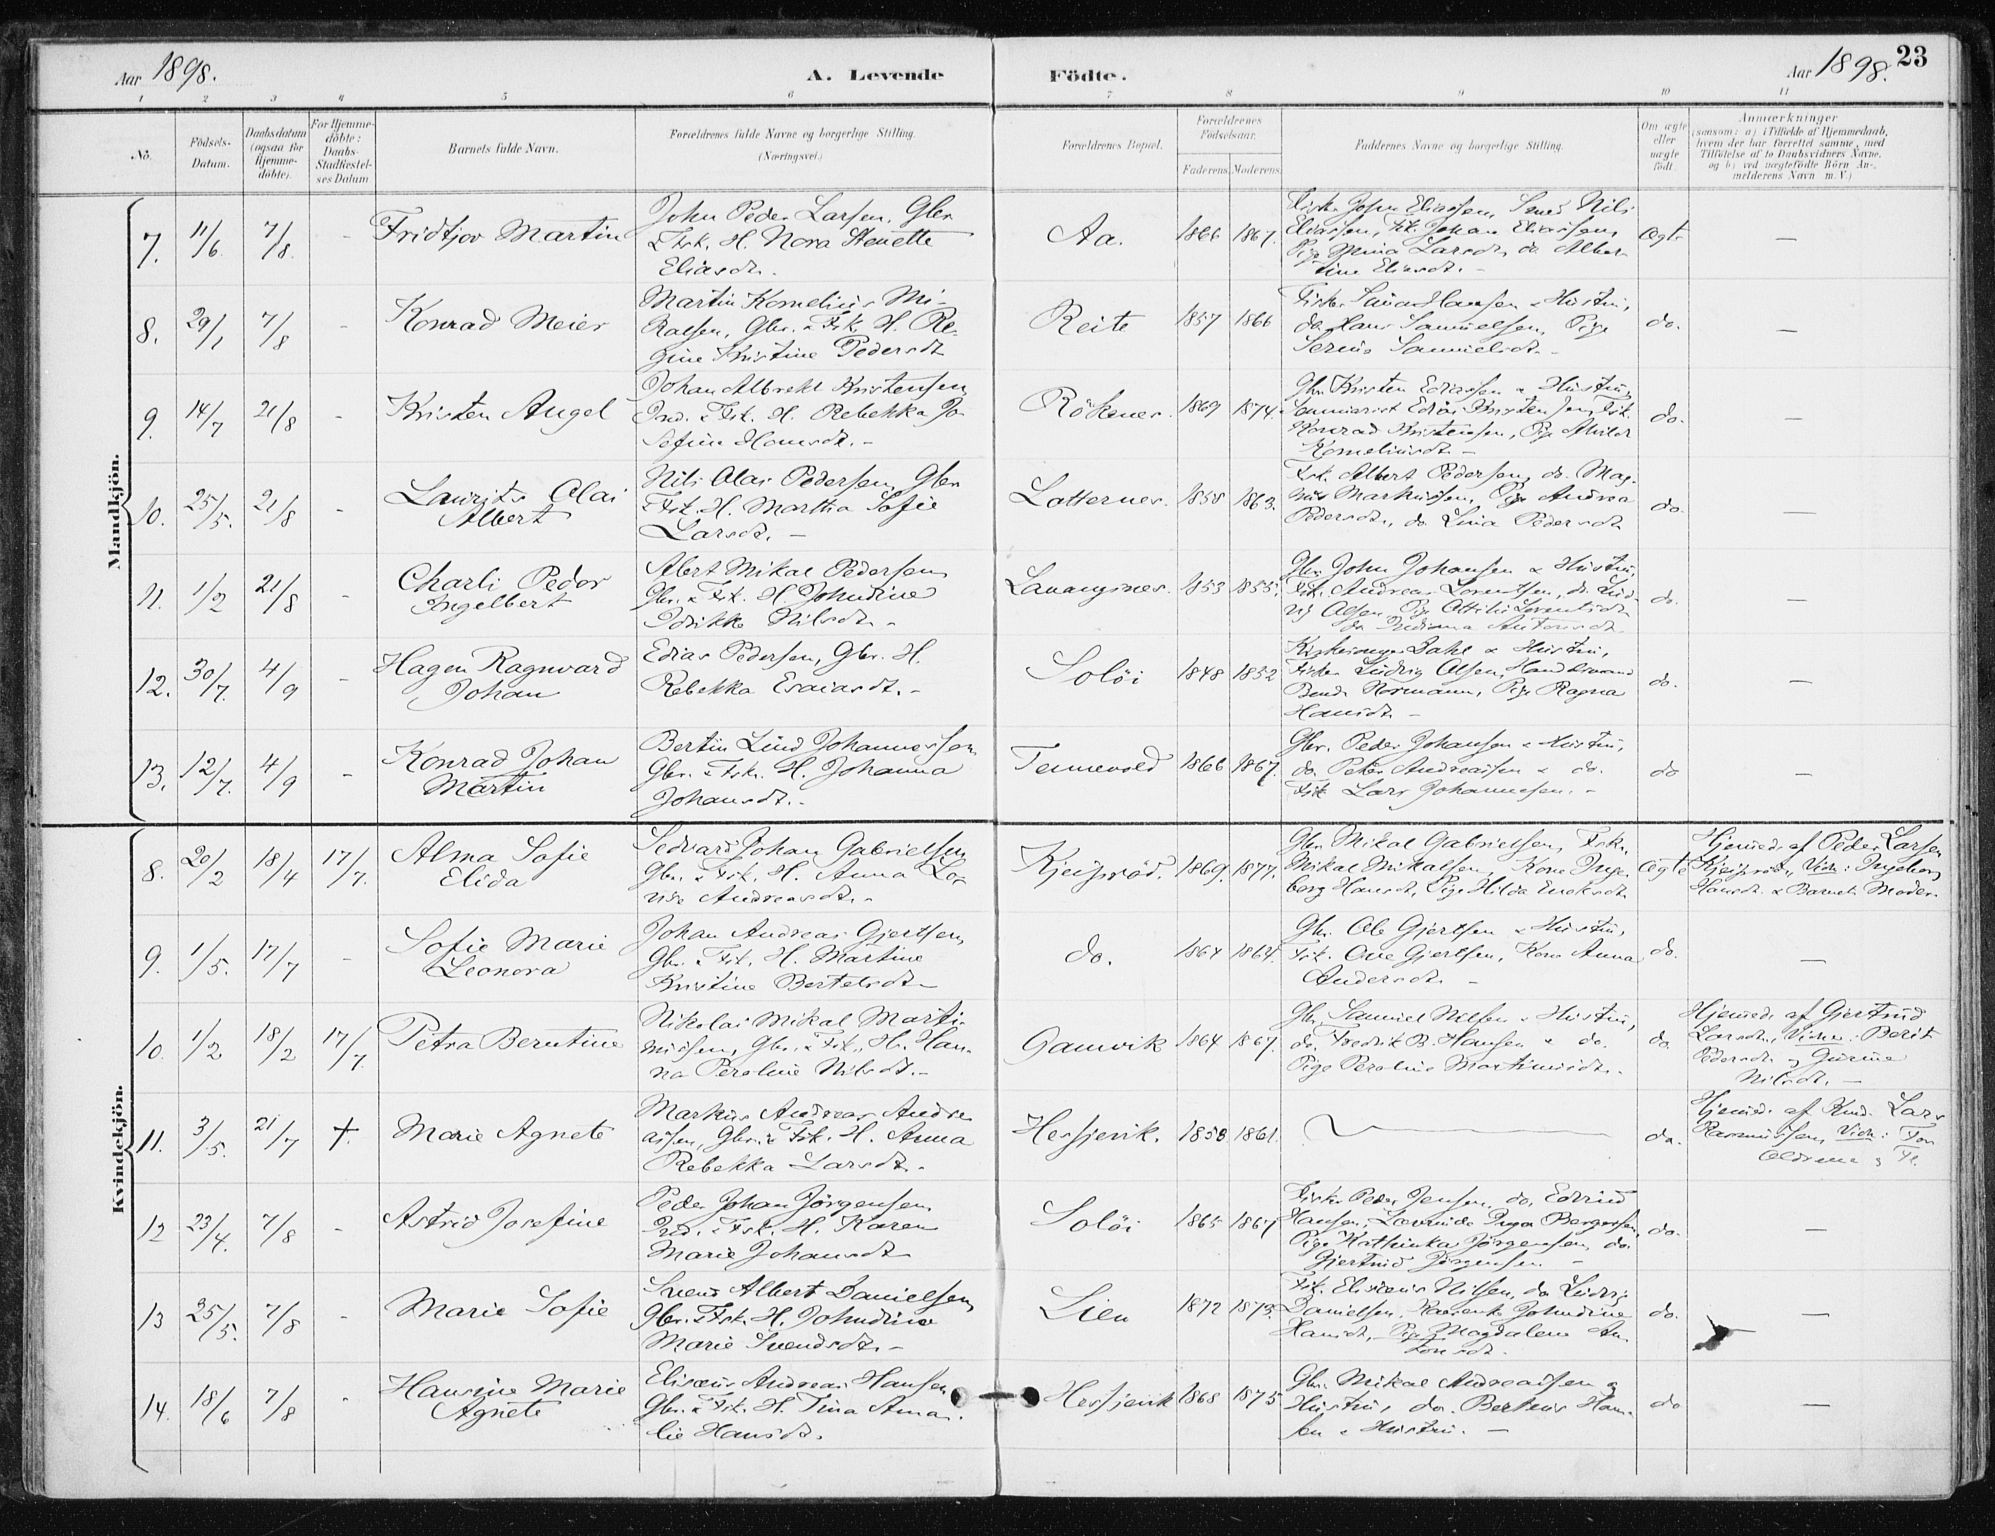 Aar 1898.
A. Levende
Födte.
Aar 1898.
23
1 2 3 4 5 6 7 8 9 10 11
No.
Födsels-Datum.
Daabsdatum (ogsaa for Hjemme-döbte).
For Hjemme-döbte: Daabs-Stadfæstel-ses Datum
Barnets fulde Navn.
Forældrenes fulde Navne og borgerlige Stilling. (Næringsvei.)
Forældrenes Bopæl.
Forældrenes Födselsaar.
Faderens. Moderens.
Faddernes Navne og borgerlige Stilling.
Om ægte eller uægte födt.
Anmærkninger
(saasom: a) i Tilfælde af Hjemmedaab, hvem der har forrettet samme, med Tilföielse af to Daabsvidners Navne, og b) ved uægtefödte Börn An-melderens Navn m. V.)
Mandkjön.
7. 11/6. 7/8. - Fridtjov Martin
John Peder Larsen, Gbr.
& Fsk. H. Nora Henette
Eliasdt.
Aa. 1866 1867.
Fisker Johan Eliassen, Smed Nils
Eliassen, Fsk. Johan Eliassen,
Pige Larsdt, do Alber-
tine Eliasdt. -
Ægte -
8. 29/1 7/8 - Konrad Meier
Martin Kornelius Mi-
kalsen, Gbr. & Fsk. H. Re-
gine Kristine Pedersdt
Reite 1857 1866
Fisker Hansen & Hustru,
do Hans Samuelsen, Pige
Samuelsdt. -
do. -
9. 14/7 21/8 - Kristen Angel
Johan Albrekt Kristensen
Ind. & Fsk. H. Rebekka Jo-
sefine Hansdt. -
Röksnes. 1869 1874.
Gbr. Kristen Ediassen & Hustru,
Edias Kristensen, Fsk.
Konrad Kristensen, Pige
Korneliusdt. -
do. -
10. 25/5. 21/8 - Laurits Olai
Albert
Nils Olai Pedersen, Gbr
Fsk. H. Martha Sofie
Larsdt. -
Lotternes. 1858 1863.
Fsk. Albert Pedersen, do. Mag-
nus Markussen, Pige Andrea
Pedersdt., do. Lina Pedersdt
do. -
11. 1/2 21/8 - Charli Peder
Ingelbert
Albert Mikal Pedersen,
Gbr. & Fsk. H. Johndine
Nilsdt. -
Lavangsnes. 1853 1855.
Gbr. John Johansen & Hustru,
Fsk. Andreas Lorentsen, do. Lud-
vig Olsen, Pige Lorentsdt
do Indiana Antonsdt.
do. -
12. 30/7. 4/9 - Hagen Ragnvard
Johan
Edias Pedersen, Gbr. H.
Rebekka Esaiasdt. -
Solöi 1848 1852
Kirkesanger Dahl & Hustru,
Fisker Ludvig Olsen,
Normann, Pige Ragna
Hansdt. -
do. -
13. 12/7. 4/9 - Konrad Johan
Martin
Bertin Lind Johannessen
Gbr. & Fsk. H. Johanna
Johansdt. -
Tennevold 1866 1867.
Gbr. Peder Johansen & Hustru,
do. Peter Andreassen & do.
Fsk Lars Johannesen. -
do -
Kvindekjön.
8. 20/2 18/4 17/7. Alma Sofie
Elida
Sedvard Johan Gabrielsen
Gbr. & Fsk. H. Anna Lo-
vise Andreasdt. -
1869. 1877.
Gbr. Mikal Gabrielsen, Fsk.
Mikal Mikalsen, Kone Inge-
borg Hansdt, Pige Hilda
Ægte
Hjemmed. af Peder Larsen
Vidn: Ingeborg
Hansdt. & Barnets Moder
9. 1/5. 17/7 - Sofie Marie
Leonora
Johan Andreas Gjertsen,
Gbr. & Fsk. H. Martine
Kristine Bertelsdt. -
do. 1864 1864.
Gbr. Ole Gjertsen & Hustru,
Fsk. Ove Gjertsen, Kone Anna
Andersdt. -
do. -
10. 1/2 18/2 17/7. Petra Berntine
Nikolai Mikal Marti-
nussen, Gbr. & Fsk. H. Han-
na Peroline Nilsdt. -
Gamvik 1864 1867.
Gbr. Samuel Nilsen & Hustru,
do. Fredrik B. Hansen & do.
Pige Peroline Martinusdt. -
do.
Hjemmed. af Gjertrud
Larsdt., Vidn: Berit
Pedersdt og
Nilsdt. -
11. 3/5. 21/7 +. Marie Agnete
Markus Andreas Andre-
assen, Gbr. & Fsk. H. Anna
Rebekka Larsdt. -
Hessjevik. 1858 1861.
do.
Hjemmed. af Lars
Rasmussen, Vidn:
12 23/4. 7/8 - Astrid Josefine
Peder Johan Jörgensen,
Ind. & Fsk. H. Karen
Marie Johansdt
Solöi 1865 1867
Fisker Peder Jensen, do. Edvind
Hansen, Inga Bergersen,
Pige Kathinka Jörgensen, do.
Gjertrud Jörgensen -
do. -
13 25/5. 7/8 - Marie Sofie
Svend Albert Danielsen,
Gbr. & Fsk. H. Johndine
Marie Svendsdt. -
Lien 1872 1873.
Fsk. Elisæus Nilsen, do Ludvig
Danielsen, Johndine
Hansdt, Pige Magdalena An-
tonsdt.
do. -
14. 18/6 7/8 - Hansine Marie
Agnete
Elisæus Andreas Hansen
Gbr. & Fsk. H. Tina Ama-
lie Hansdt.
Hessjevik 1868 1875
Gbr. Mikal Andreassen og
Hustru, do. Berteus Han-
sen & Hustru. -
do -